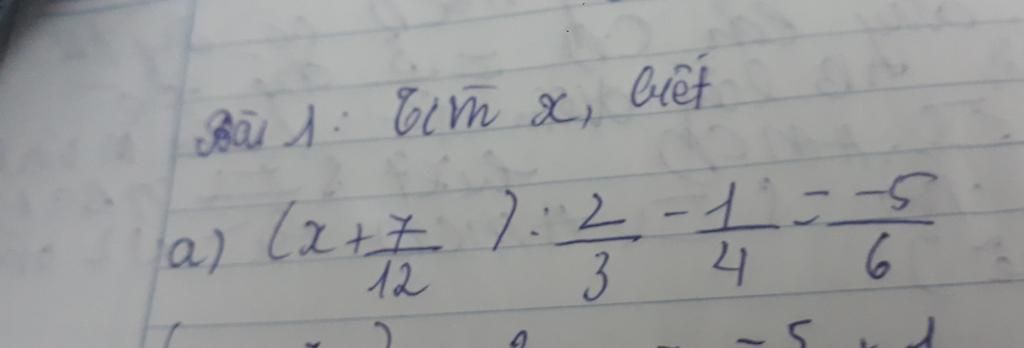 Bài 1: Tìm x, biết
a) (x + 7/12) : 2/3 - 1/4 = -5/6